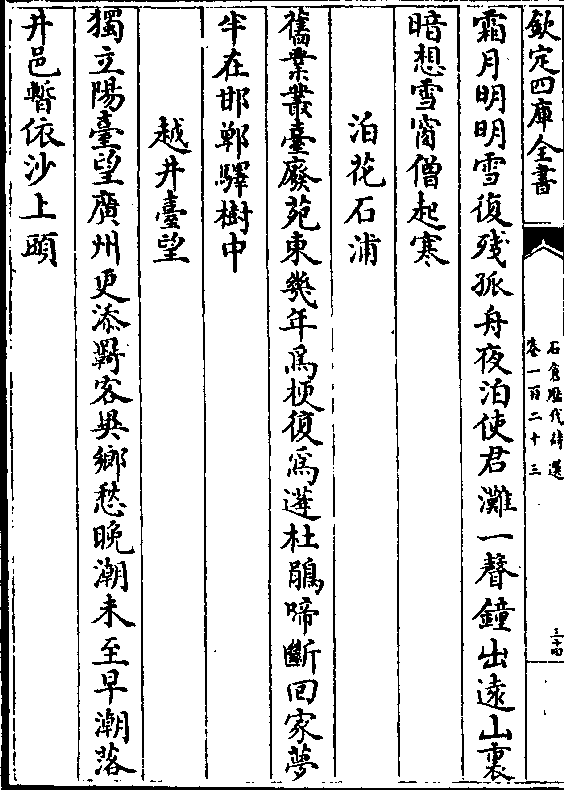 欽定四庫全書
石倉歷代詩選
卷一百二十三
三十四
霜月明明雪復殘孤舟夜泊使君灘一聲鐘出遠山裏
暗想雪窗僧起寒
泊花石浦
舊業叢臺廢苑東幾年為梗復為蓬杜鵑啼斷回家夢
半在邯鄲驛樹中
越井臺望
獨立陽臺望廣州更添羇客異鄉愁晚潮未至早潮落
井邑暫依沙上頭